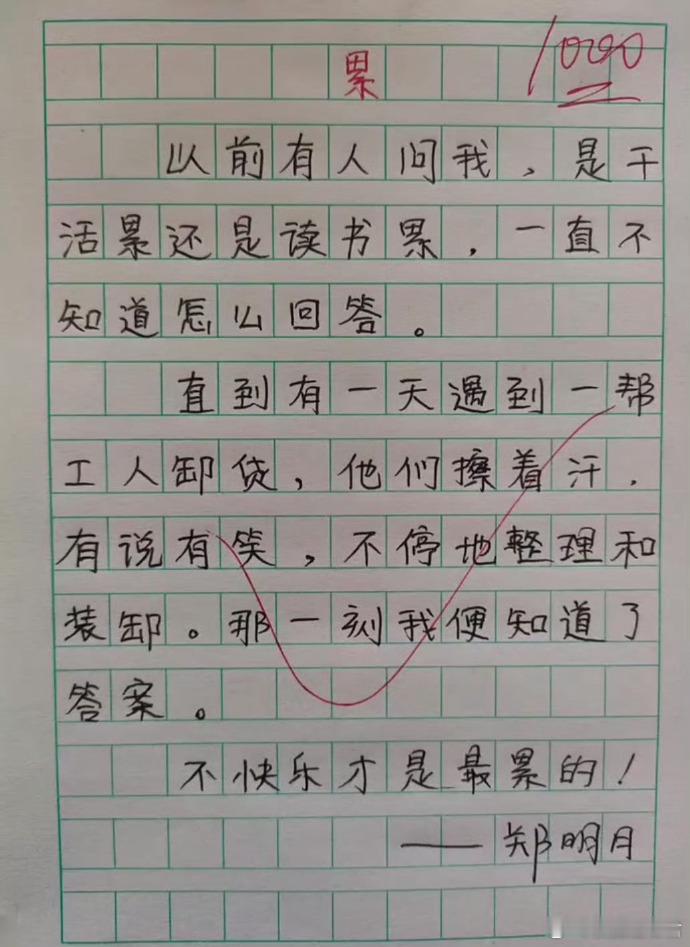 累
1000
以前有人问我，是干
活累还是读书累，一直不
知道怎么回答。
直到有一天遇到一帮
工人卸货，他们擦着汗，
有说有笑，不停地整理和
装卸。那一刻我便知道了
答案。
不快乐才是最累的！
——郑明月